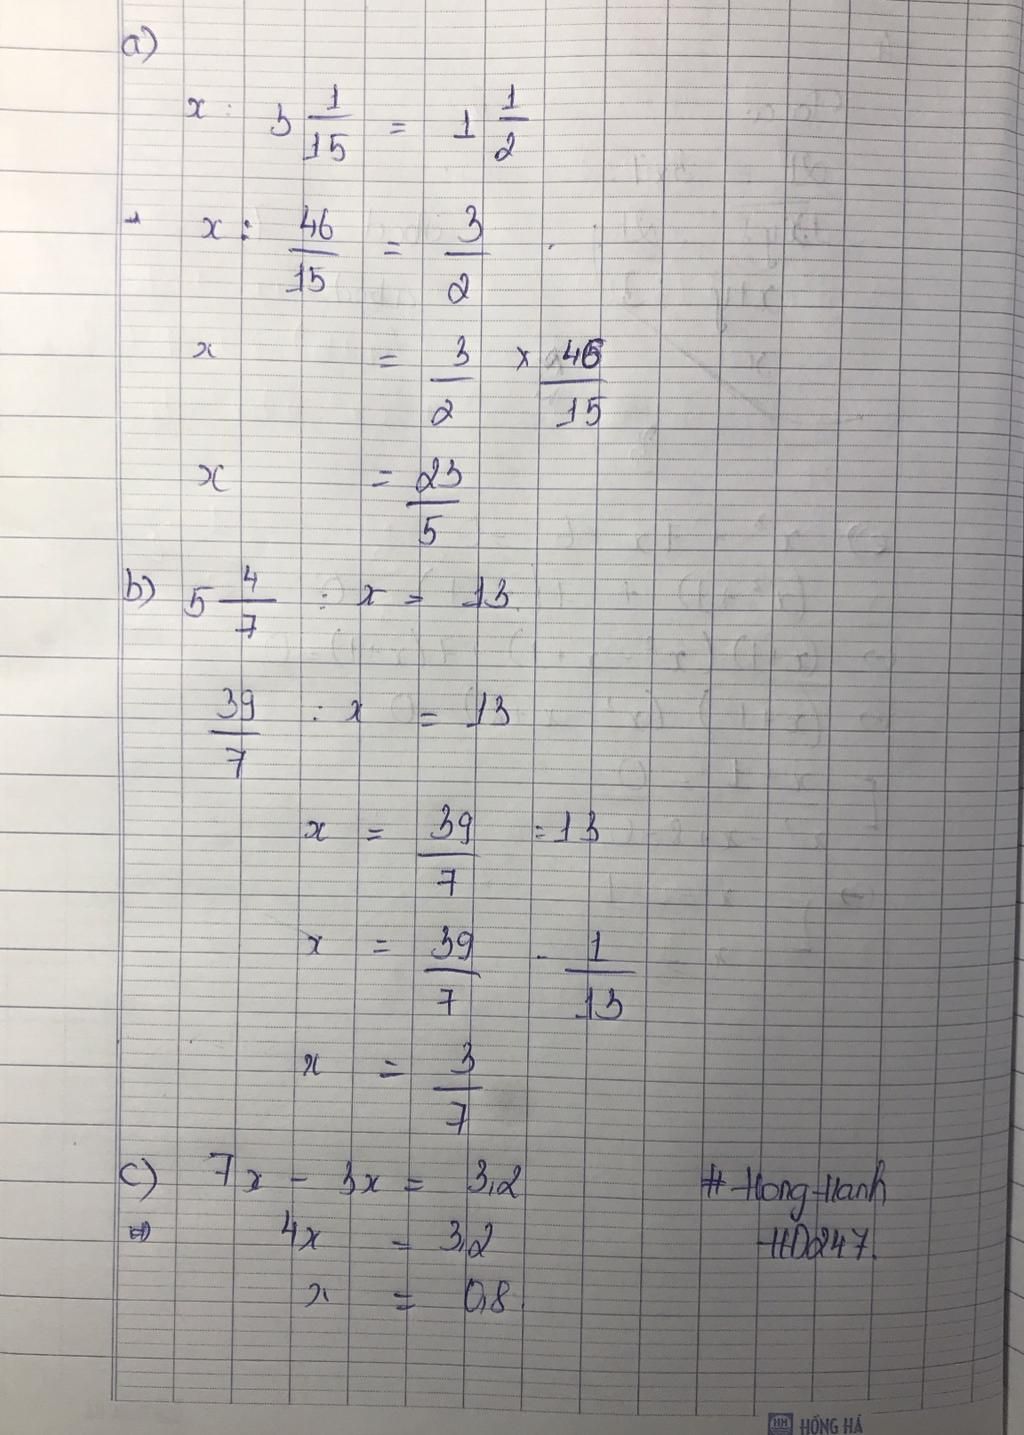 a)
x : 3 1/15 = 1 1/2
x : 46/15 = 3/2
x = 3/2 x 46/15
x = 23/5
b) 5 4/7 : x = 13
39/7 : x = 13
x = 39/7 : 13
x = 39/7 . 1/13
x = 3/7
c) 7x - 3x = 3,2
4x = 3,2
x = 0,8
# Hong Hanh
HD247.
HH HỒNG HÀ